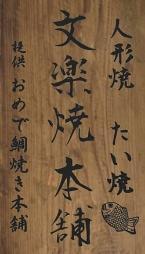 人形焼 たい焼
文楽焼本舗
提供 おめで鯛焼き本舗